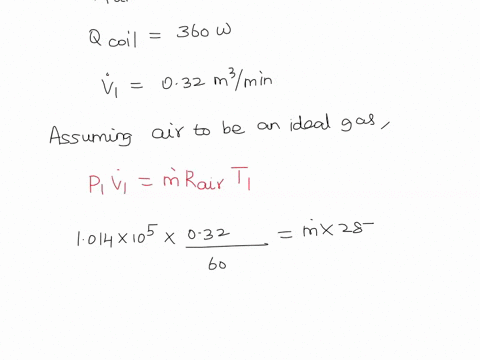 Q coil = 360 W
V̇₁ = 0.32 m³/min
Assuming air to be an ideal gas,
P₁ V̇₁ = ṁ Rair T₁
1.014 × 10⁵ × 0.32/60 = ṁ × 28